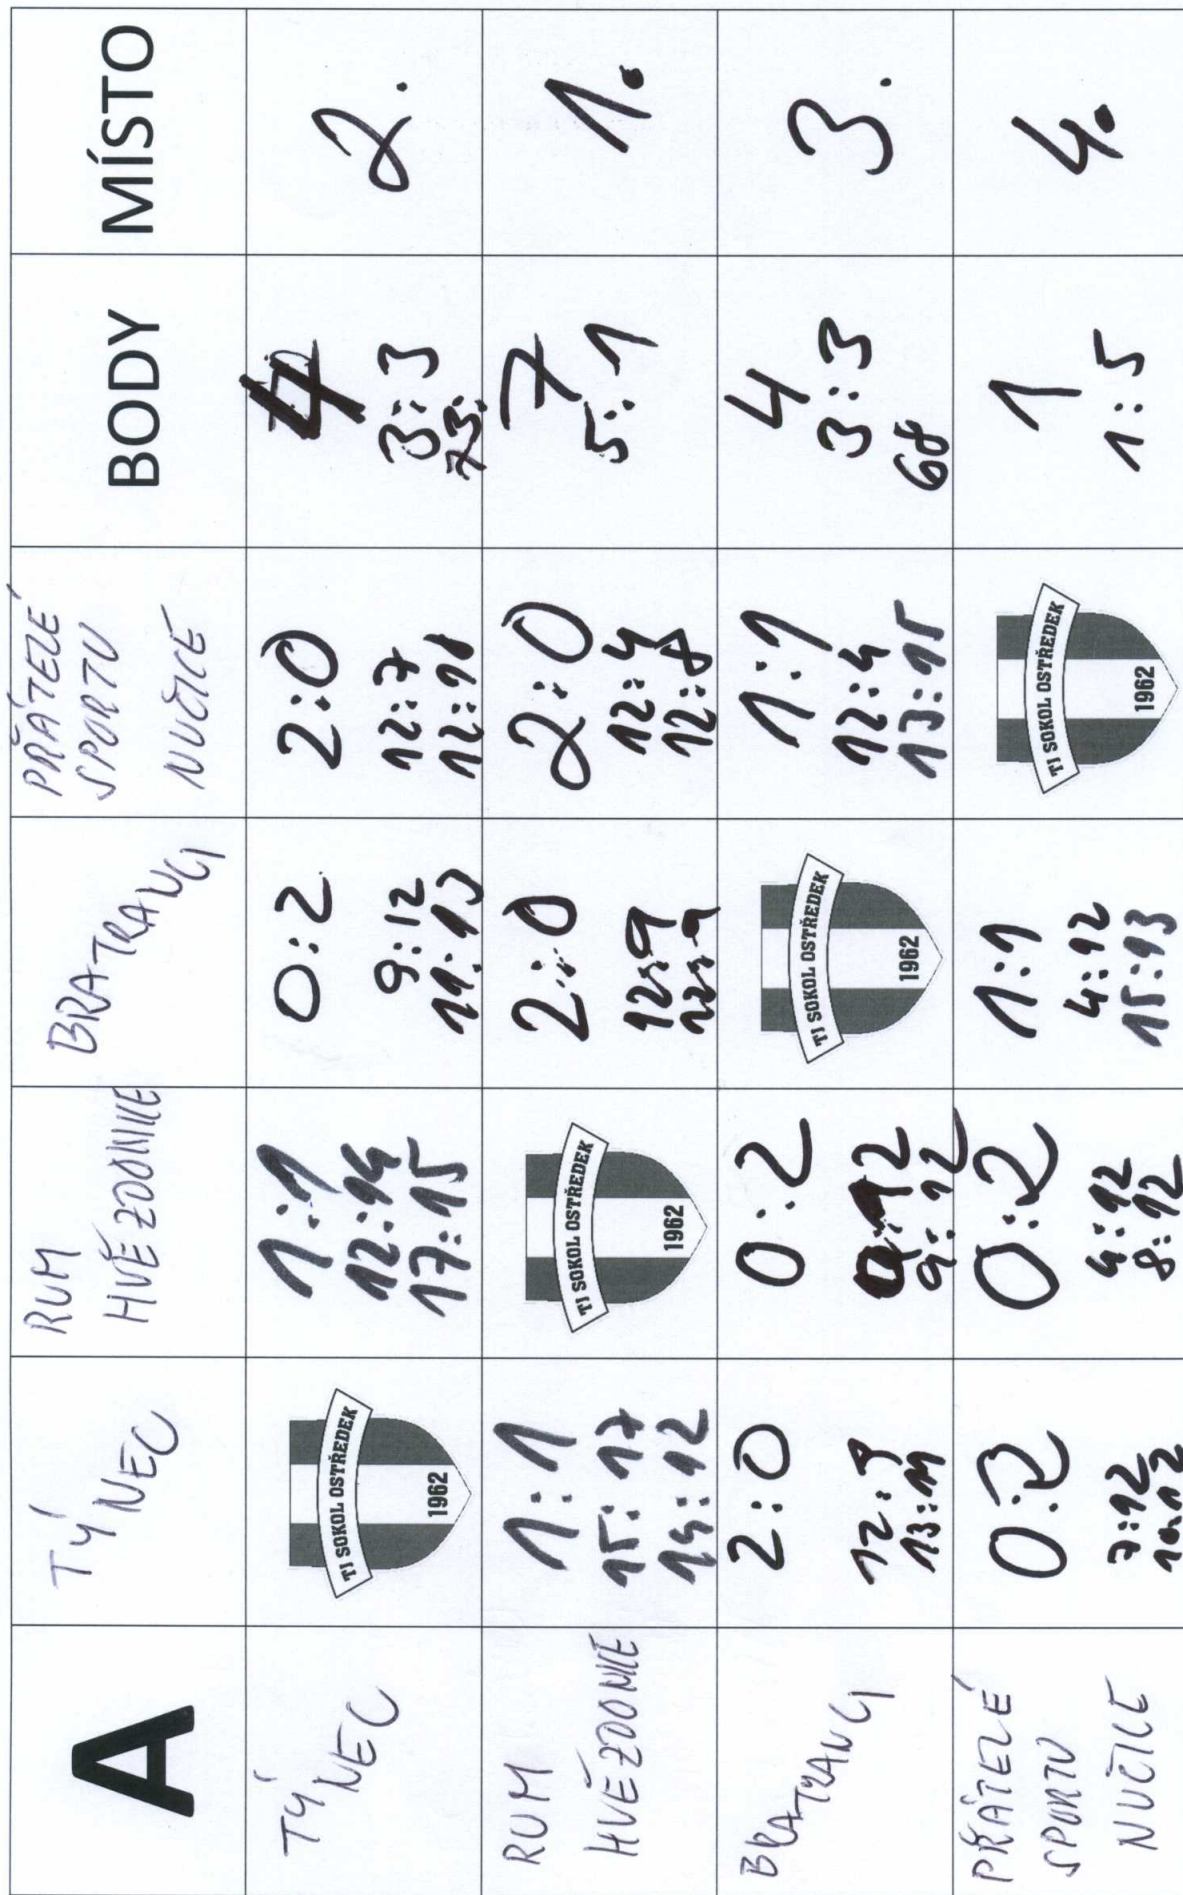 A
TÝNEC
RUM
HVĚZDONICE
BRATRANCI
PŘÁTELÉ
SPORTU
NUČICE
BODY
MÍSTO
TÝNEC
TJ SOKOL OSTŘEDEK
1962
1:1
12:14
17:15
0:2
9:12
11:13
2:0
12:7
12:10
4
3:3
73:
2.
RUM
HVĚZDONICE
1:1
15:17
14:12
TJ SOKOL OSTŘEDEK
1962
2:0
12:9
12:9
2:0
12:4
12:8
7
5:1
1.
BRATRANCI
2:0
12:9
13:11
0:2
9:12
9:12
TJ SOKOL OSTŘEDEK
1962
1:1
12:4
13:15
4
3:3
68
3.
PŘÁTELÉ
SPORTU
NUČICE
0:2
7:12
10:12
0:2
4:12
8:12
1:1
4:12
15:13
TJ SOKOL OSTŘEDEK
1962
1
1:5
4.